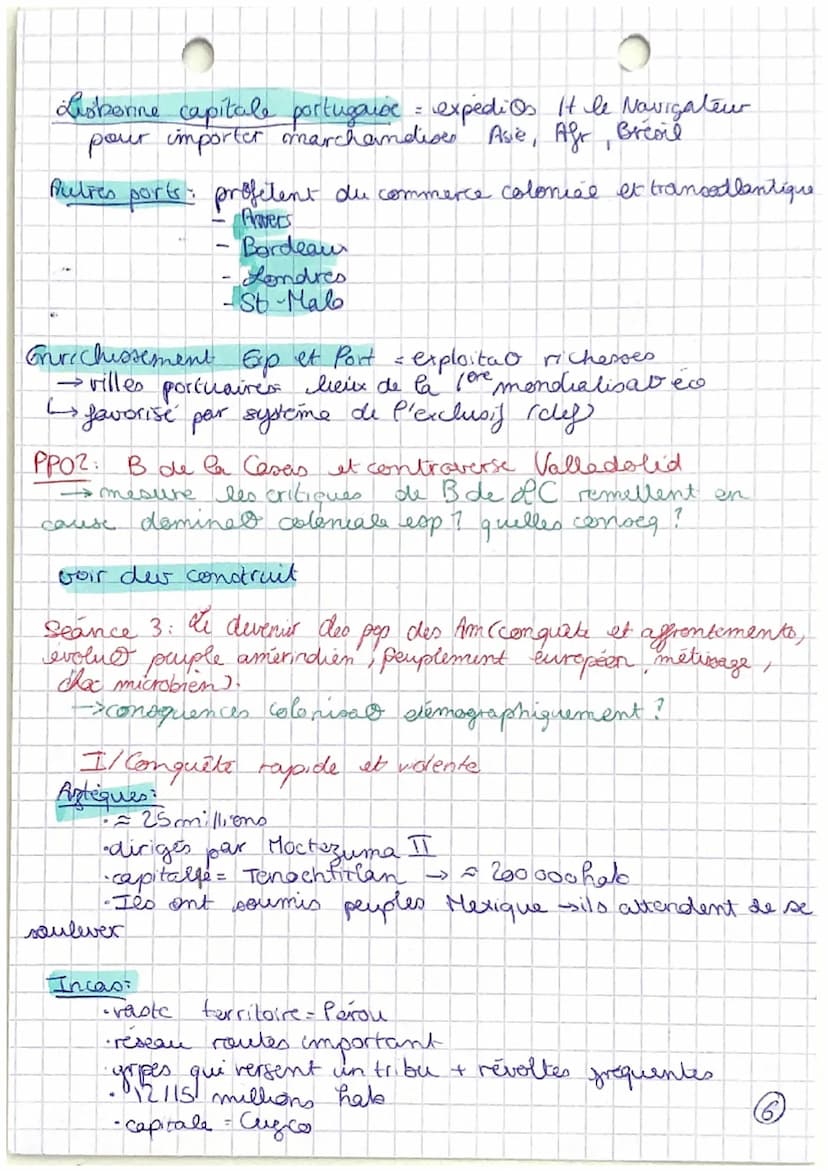 Lisbonne capitale portugaise = expédiOs H le Navigateur
pour importer marchandises Asie, Afr, Brésil
Autres ports : profitent du commerce colonial et transatlantique
- Anvers
- Bordeaux
- Londres
- St-Malo
Enrichissement Esp et Port = exploitaO richesses
→ villes portuaires lieux de la 1ère mondialisat° éco
↳ favorisé par système de l'exclusif (def)
PPO2 : B de la Casas et controverse Valladolid
→ mesure les critiques de B de LC remettent en
cause dominatO coloniale esp ? quelles conseq ?
voir dev construit
Séance 3 : Le devenir des pop des Am (conquête et affrontements,
évolutO peuple amérindien, peuplement européen, métissage,
choc microbien).
→ conséquences colonisatO démographiquement ?
I/ Conquête rapide et violente
Aztèques :
• ≈ 25 millions
• dirigés par Moctezuma II
• capitale = Tenochtitlan → ≈ 200 000 hab
• Ils ont soumis peuples Mexique → ils attendent de se
soulever
Incas :
• vaste territoire = Pérou
• réseau routes important
• grpes qui versent un tribu + révoltes fréquentes
• 12/15 millions hab
• capitale = Cuzco
6